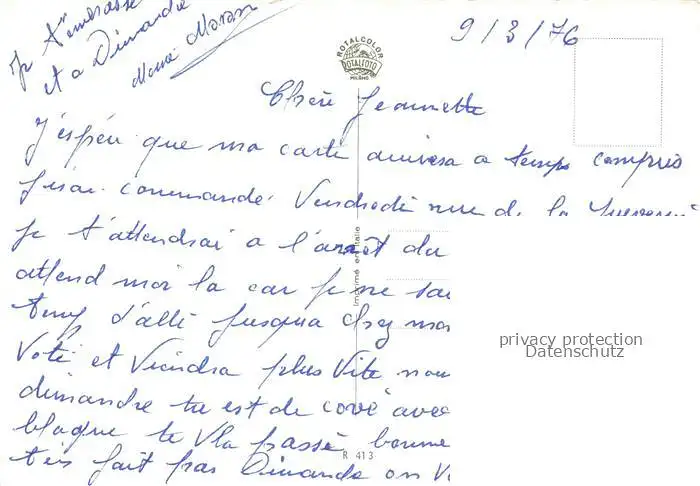 je t'embrasse
et a Dimanche
Maria Maran
9/3/76
ROTALCOLOR
ROTALFOTO
MILANO
Chère Jeannette
J'espèu que ma carte a temps compris
commandé. Vendredi de la
je t'attendrai a l'arrêt du
attend moi la car je ne sai
temp d'allé jusqua chez mo
Voté et Viendra plus Vite nou
dimandre tu est de cové avec
blague te Vla passè bonne
fait pas Dimande on V
Imprimé en Italie
R 413
privacy protection
Datenschutz